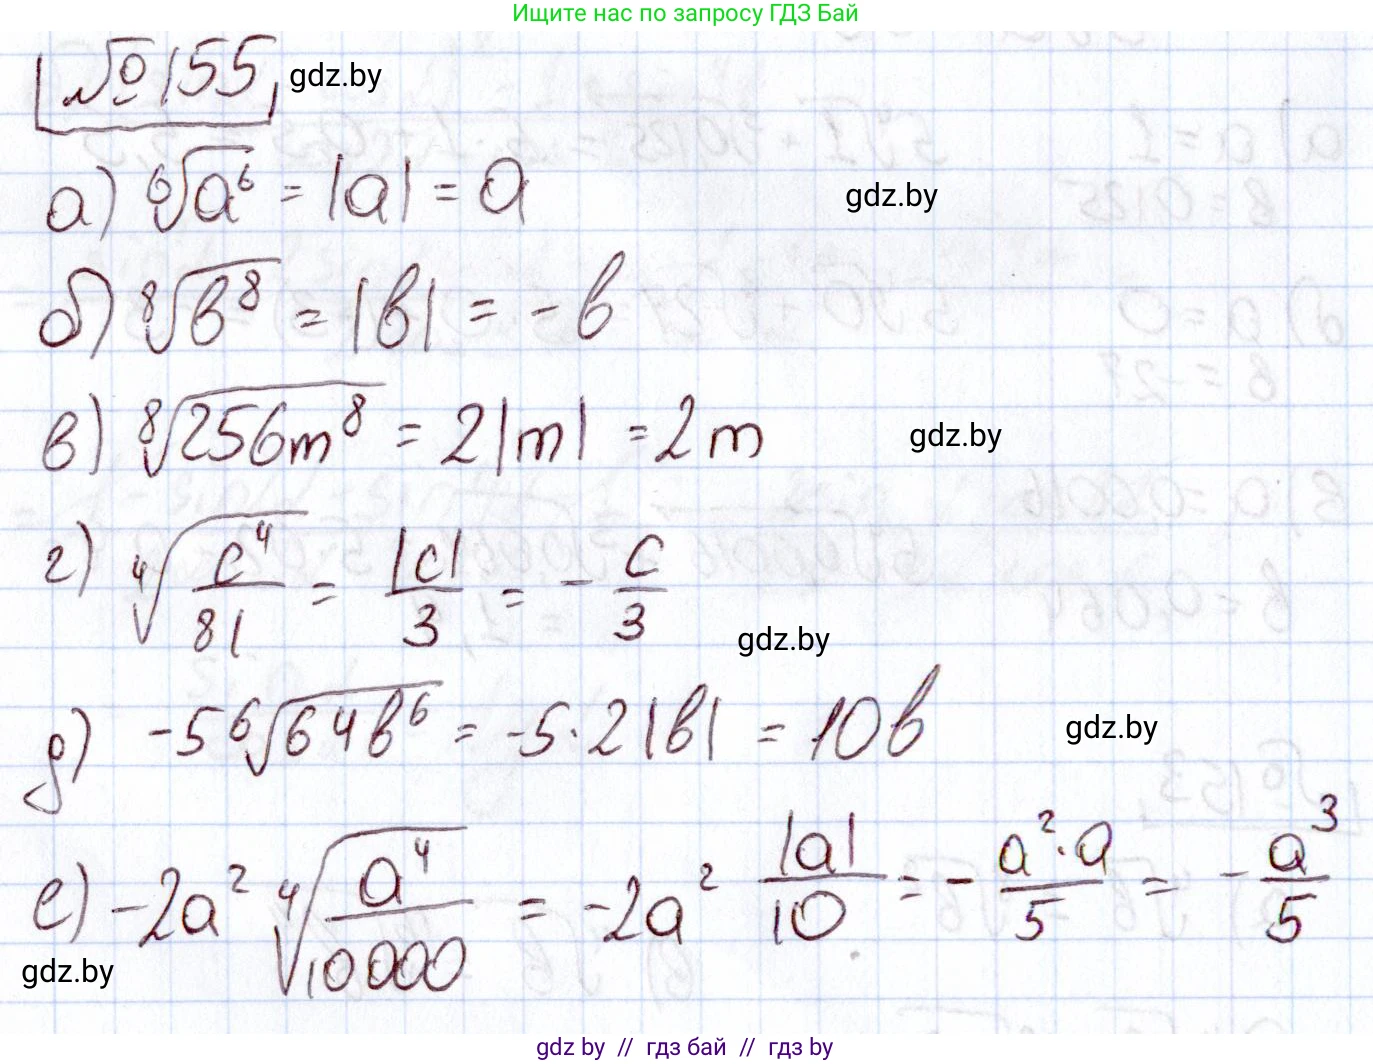 Ищите нас по запросу ГДЗ Бай
№ 155 gdz.by
а) ⁶√a⁶ = |a| = a gdz.by
б) ⁸√b⁸ = |b| = - b
в) ⁸√256m⁸ = 2|m| = 2m gdz.by
г) ⁴√(c⁴/81) = |c|/3 = - c/3 gdz.by
д) -5 ⁶√64b⁶ = -5·2|b| = 10b gdz.by
е) -2a² ⁴√(a⁴/10000) = -2a² |a|/10 = - a²·a/5 = - a³/5
gdz.by
gdz by // гдз бай // гдз by